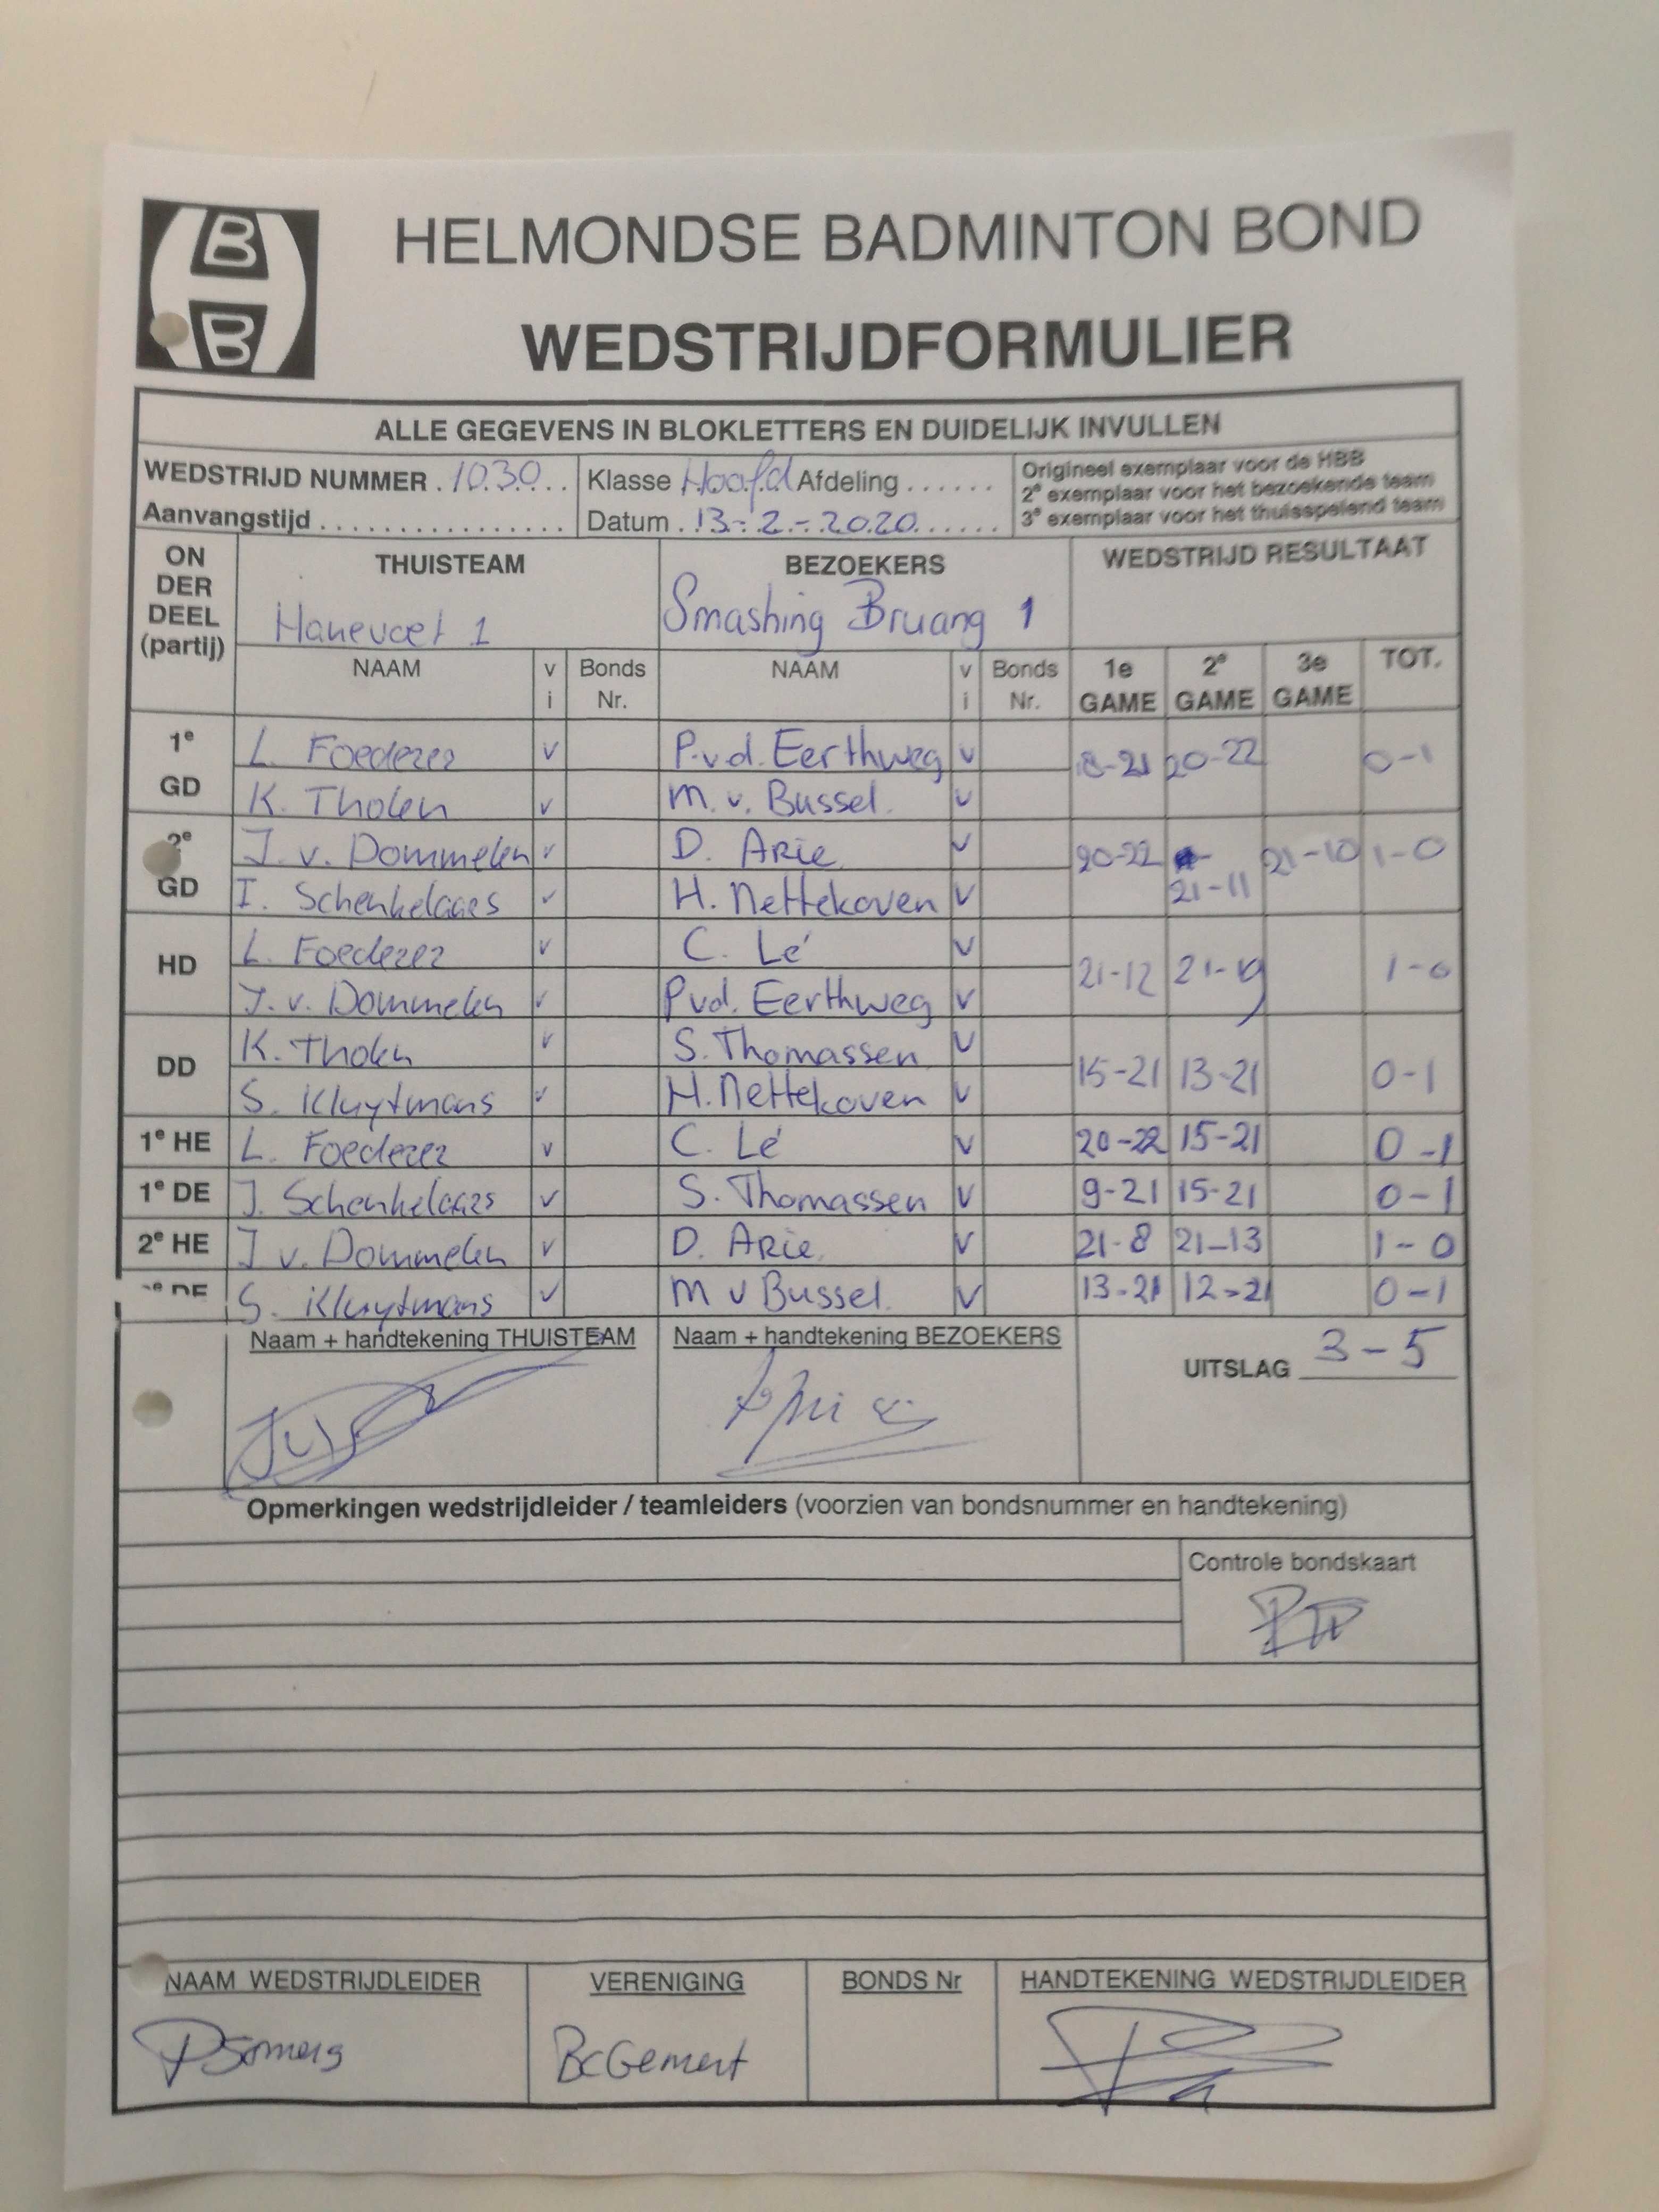 B
B
HELMONDSE BADMINTON BOND
WEDSTRIJDFORMULIER
ALLE GEGEVENS IN BLOKLETTERS EN DUIDELIJK INVULLEN
WEDSTRIJD NUMMER . 1030 . . Klasse Hoofd Afdeling . . . . . . Origineel exemplaar voor de HBB
2e exemplaar voor het bezoekende team
Aanvangstijd . . . . . . . . . . . . . . . . Datum . 13-2-2020 . . . . . . 3e exemplaar voor het thuisspelend team
ON DER DEEL (partij) THUISTEAM BEZOEKERS WEDSTRIJD RESULTAAT
Hanevoet 1 Smashing Bruang 1
NAAM v i Bonds Nr. NAAM v i Bonds Nr. 1e GAME 2e GAME 3e GAME TOT.
1e GD L. Foederer v P.v.d. Eerthweg v 18-21 20-22 0-1
K. Tholen v M. v. Bussel. v
2e GD J. v. Dommelen v D. Arie v 20-22 21-11 21-10 1-0
I. Schenkelaars v H. Nettekoven v
HD L. Foederer v C. Lé v 21-12 21-19 1-0
J. v. Dommelen v Pvd. Eerthweg v
DD K. Tholen v S. Thomassen v 15-21 13-21 0-1
S. Kluytmans v H. Nettekoven v
1e HE L. Foederer v C. Lé v 20-22 15-21 0-1
1e DE I. Schenkelaars v S. Thomassen v 9-21 15-21 0-1
2e HE J v. Dommelen v D. Arie. v 21-8 21-13 1-0
2e DE S. Kluytmans v M v Bussel. v 13-21 12-21 0-1
Naam + handtekening THUISTEAM Naam + handtekening BEZOEKERS UITSLAG 3-5
Opmerkingen wedstrijdleider / teamleiders (voorzien van bondsnummer en handtekening)
Controle bondskaart
NAAM WEDSTRIJDLEIDER VERENIGING BONDS Nr HANDTEKENING WEDSTRIJDLEIDER
PSomers BC Gemert